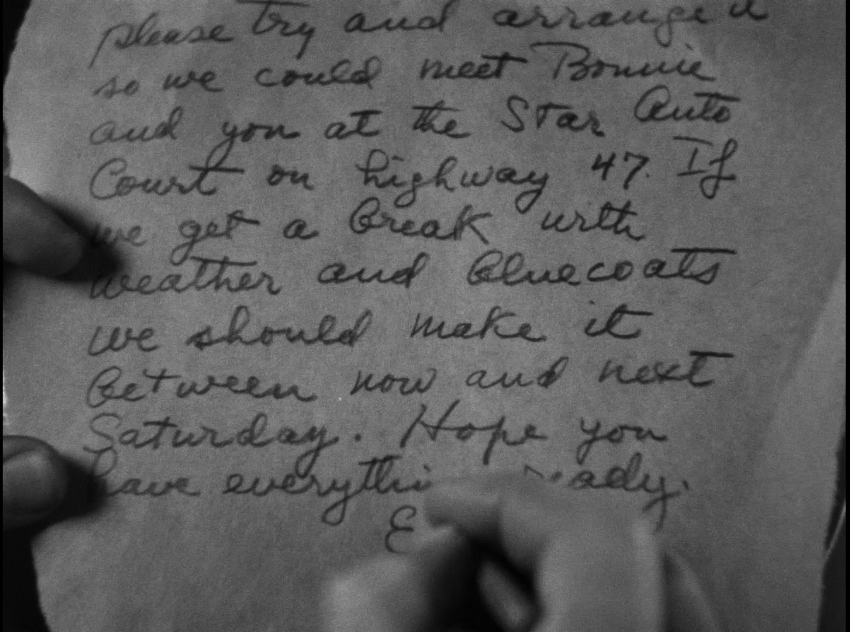 please try and arrange it
so we could meet Bonnie
and you at the Star Auto
Court on highway 47. If
we get a break with
weather and bluecoats
we should make it
between now and next
Saturday. Hope you
have everythi ready.
E